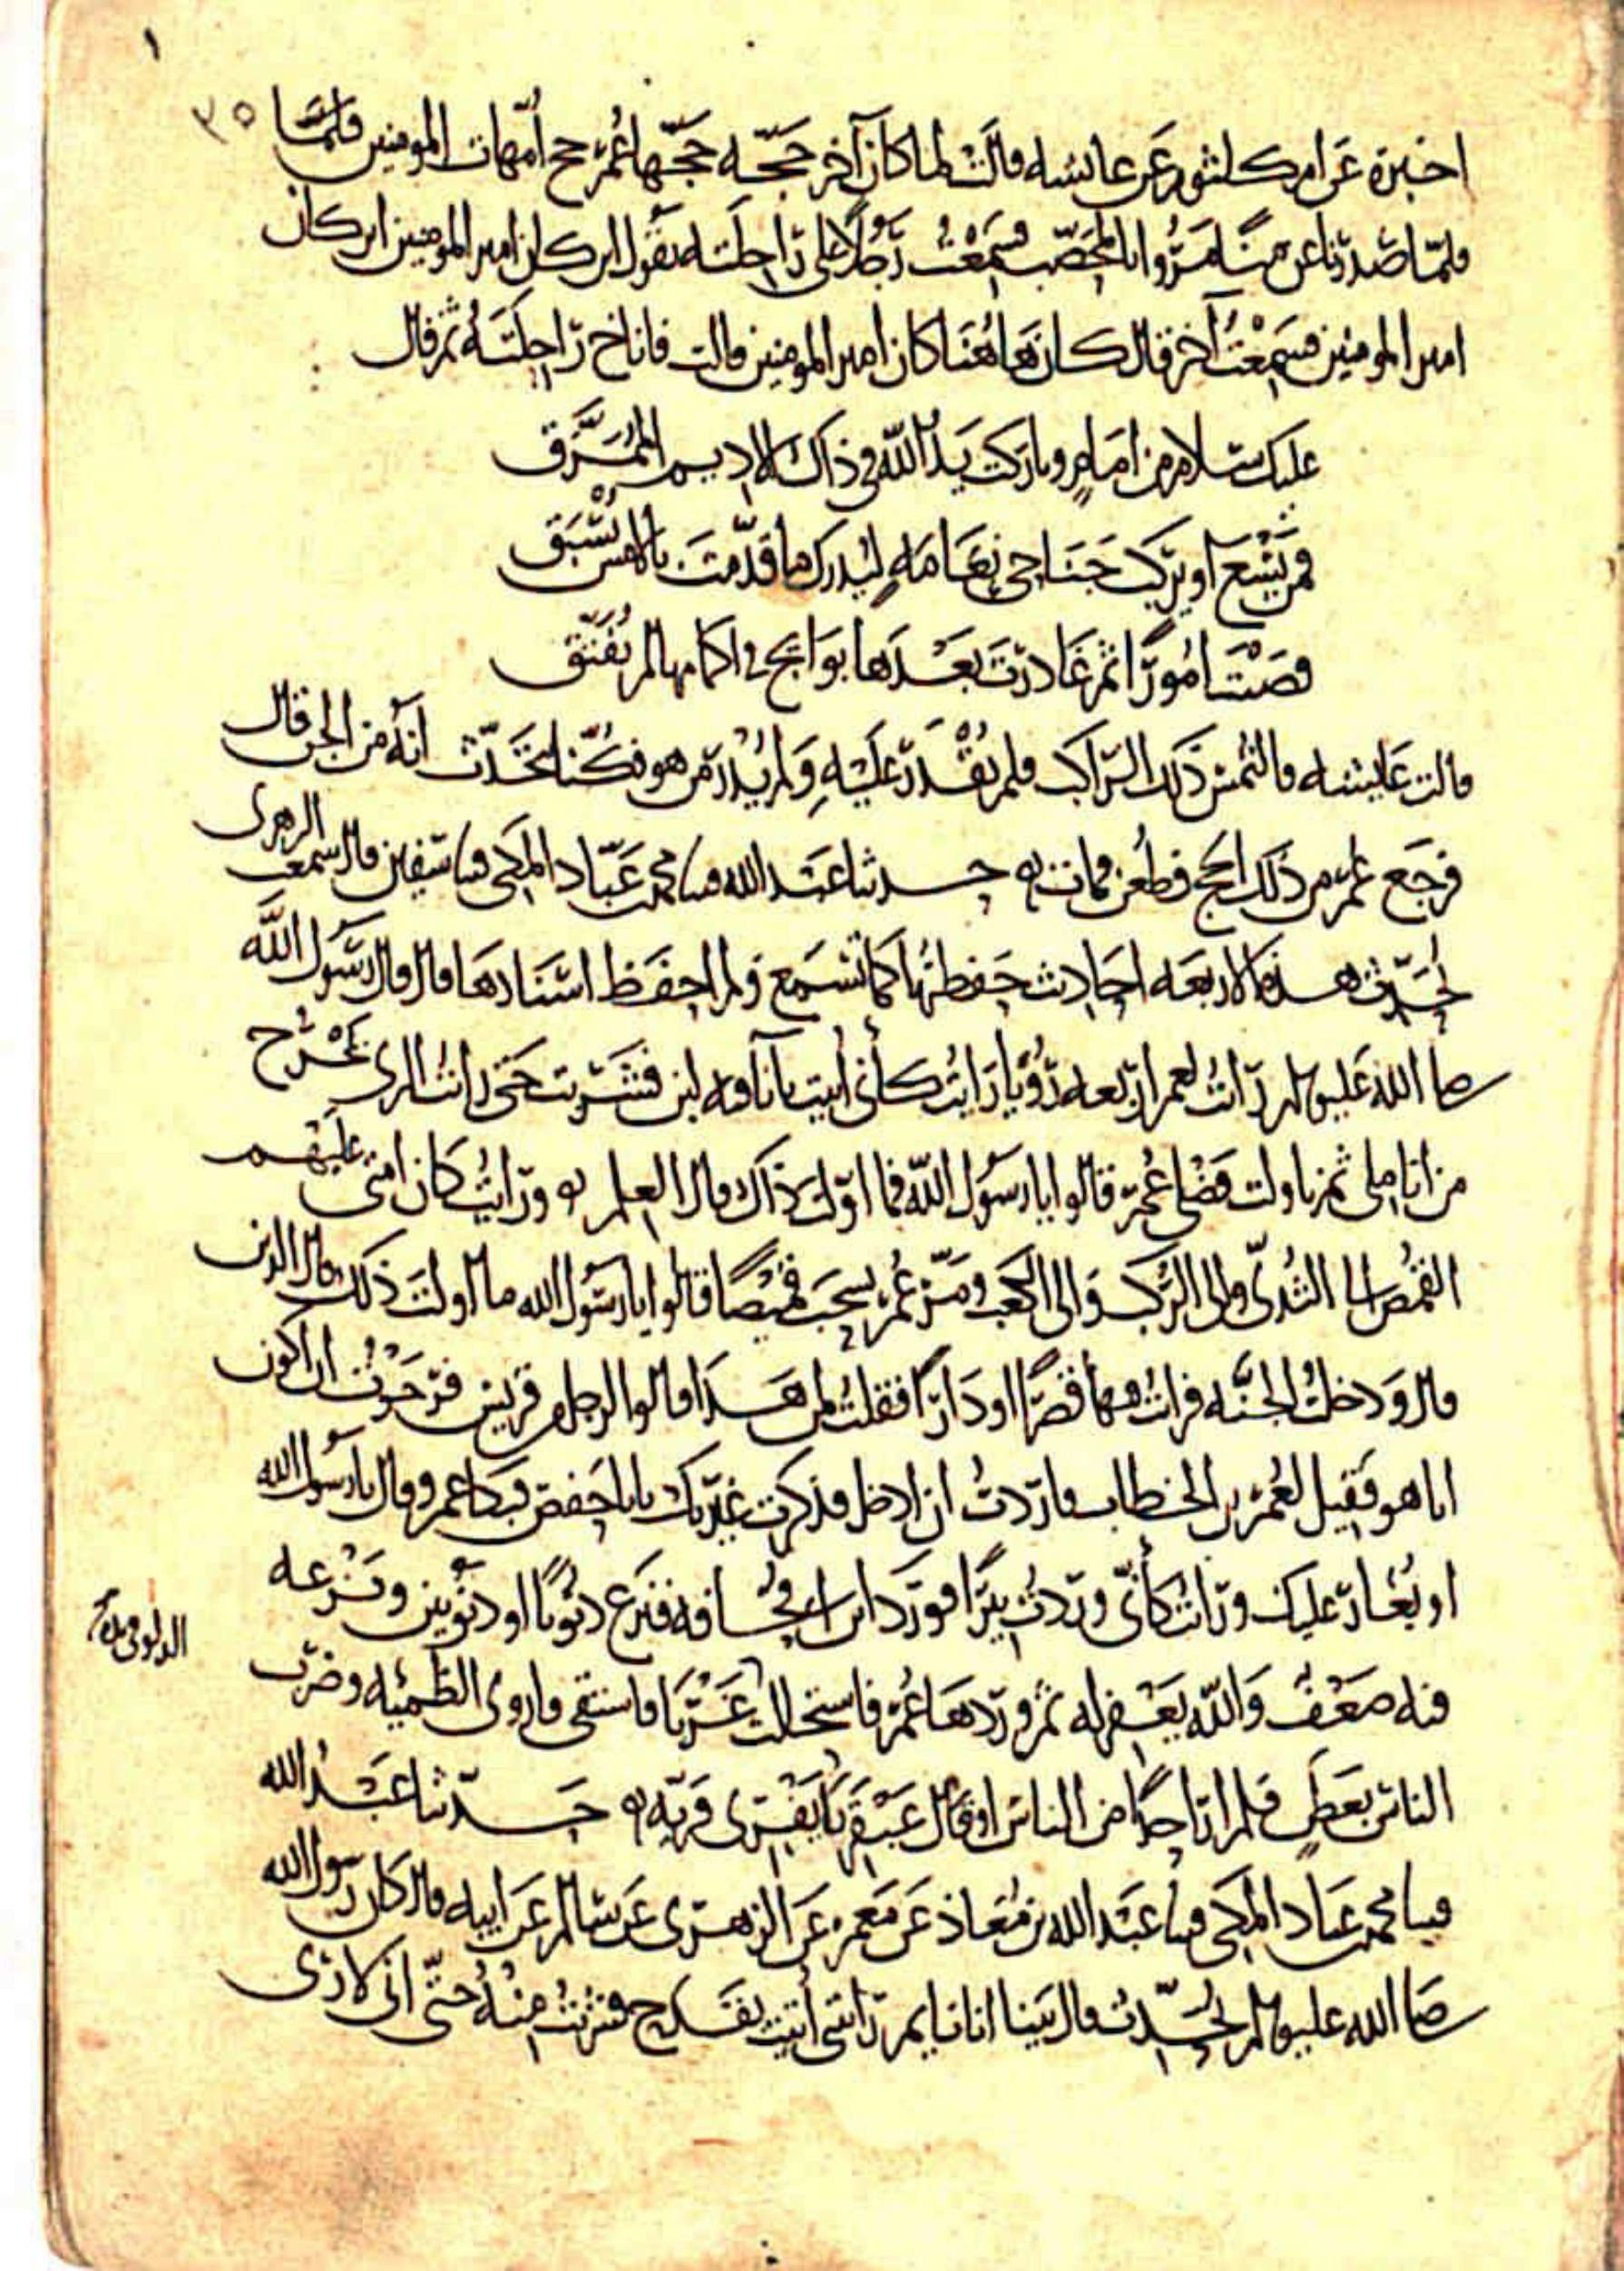 ١
٣٥
اخبره عن ام كلثوم عن عايشه قالت لما كان آخر حجّه حجّها عُمر حج أمّهات المومنين قالت
فلمّا صدرنا عن منًا مرّوا بالمحصّب فسمعْتُ رَجُلًا على راحلته يقول اين كان امير المومنين اين كان
امير المومنين فسمِعْتُ آخر قال كان هاهُنَا كان امير المومنين قالت فاناخ راحِلَتَهُ ثم قال
عليك سلام من امامٍ وباركت يَدُ الله في ذاك الاديم المُمَزَّق
فمن يَسْعَ او يركب جَنَاحي نعَامَهٍ ليُدرك ما قدّمتَ بالامس يُسْبَق
قضيْتَ امُورًا ثم غادرتَ بَعْدَها بوايج في اكمامها لم تُفَتَّق
قالت عايشه فالتُمس ذلك الرّاكب فلم يُقْدَر عَلَيْهِ وَلم يُدْرَ من هو فكُنّا نتحَدّث انّه من الجن قال
فرجَع عمر من ذلك الحج فطُعن فمات ۞ حدثنا عبْد الله قثنا محمد بن عَبّاد المكي قثنا سفين قال سمعت الزهري
يُحَدّث هذه الاربعه احاديث حفظتها كما تسمع ولم احفَظ اسْنَادها قال قال رسُول الله
صلى الله عليه وسلم رايتُ لعمر اربعه رُؤْيا رَايتُ كأني أتيت بانا فيه لبن فشربت حَتى رايتُ الري يَخْرُج
من اناملي ثم ناولت فَضْلي عُمر قالوا يا رسُول الله فما اوّلت ذاك قال العلم ۞ ورايتُ كان امتي عليهم
القمُص الى الثُدىّ والى الرُكَب وَالى الكعب ومَرّ عُمر يسحَب قميْصًا قالوا يا رسُول الله ما اولتَ ذلك قال الدين
قال وَدخلتُ الجنّه فرايتُ فيها قصْرًا او دَارًا فقلتُ لمن هَذَا قالوا لرجل من قريش فرَجَوْتُ ان اكون
انا هو فقيل لعُمر بن الخطاب فاردتُ ان ادخل فذكرت غَيْرتك يا با حفص فبكا عمر وقال يا رسُول الله
او يُغار عليك ورايتُ كأنّي وردتُ بيرًا فورَد ابن ابي قُحافه فنزع ذنُوبًا او ذنُوبين ونزعه
الدلو
فيه ضعْف وَالله يَغْفر له ثم ورَدهَا عُمر فاستحالت غَرْبًا فاستقى فاروى الظمئيه وضرَب
الناس بعَطنٍ فلم ار احدًا من الناس او قال عبْقريًا يَفْري فَرِيّه ۞ حدّثنا عَبْدُ الله
قثنا محمد بن عباد المكي قثنا عَبْد الله بن مُعَاذ عَن مَعمر عَن الزهرى عَن سَالم عَن ابيه قال كان رسول الله
صلى الله عليه وسلم يُحَدّث قال بَينا انا نايم رايتني أُتيتُ بقَدَح فشربتُ مِنْهُ حتّى اني لارى